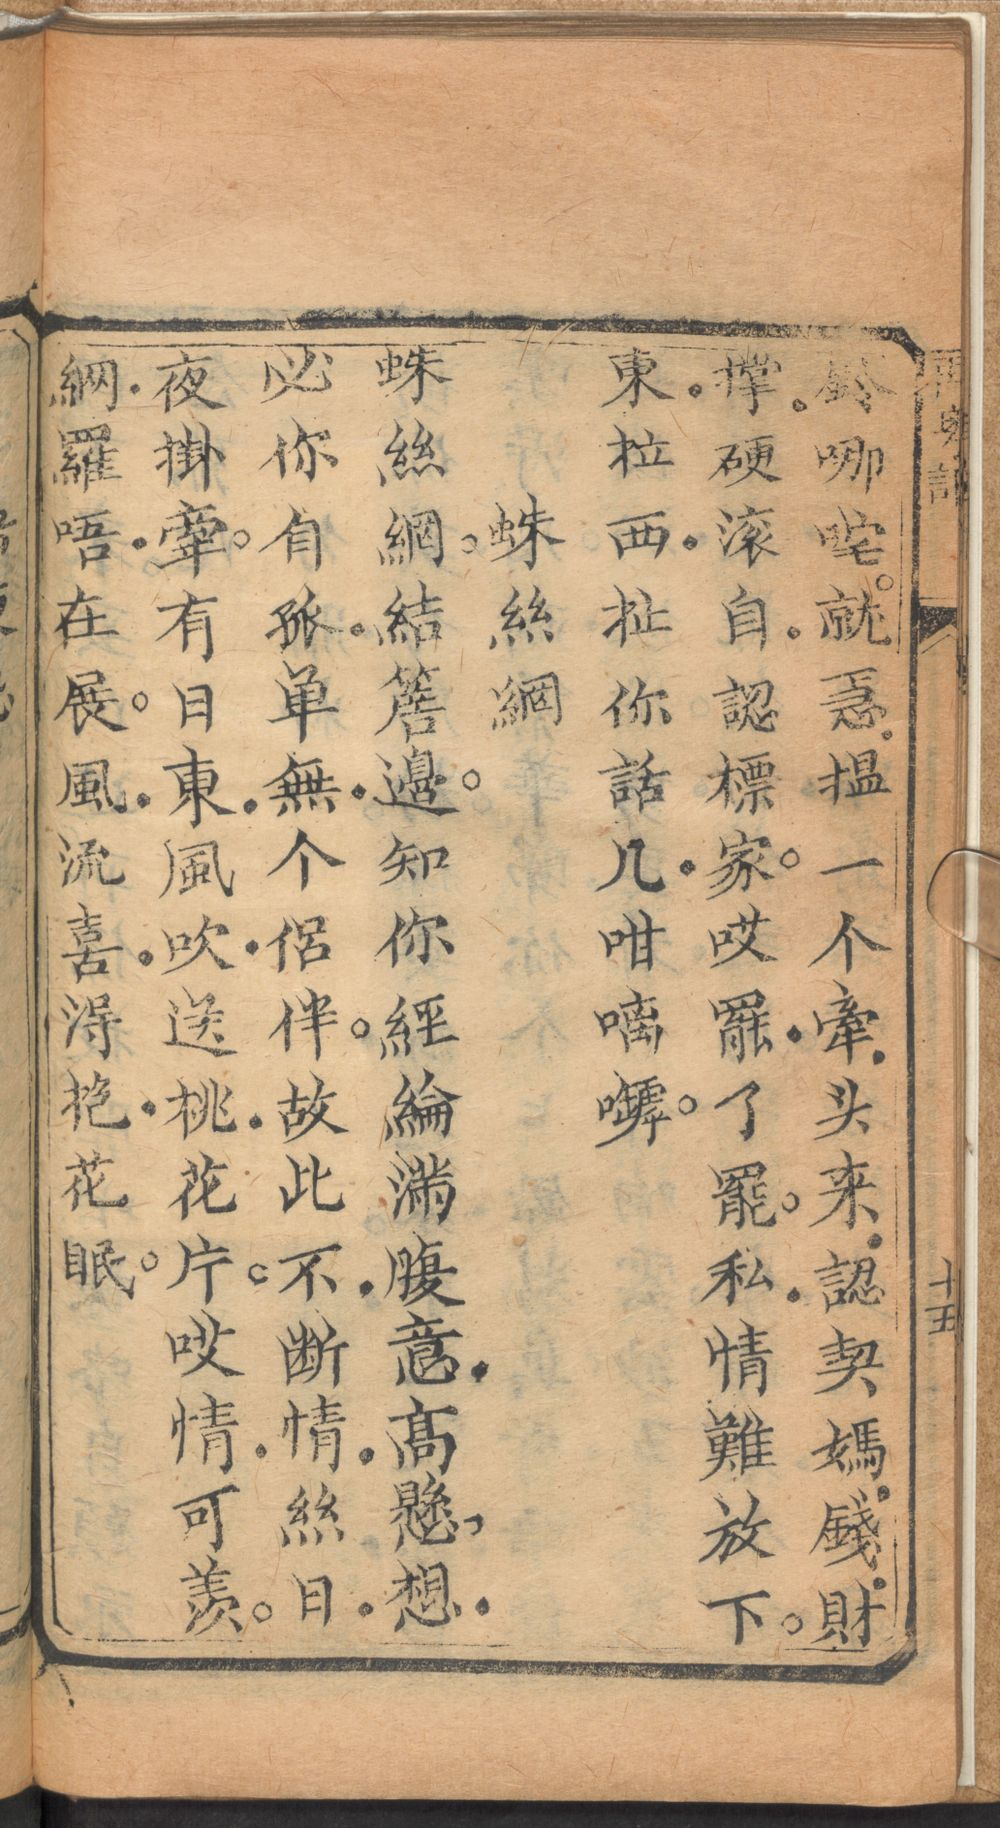 鈴哪咤就惡揾一个牽头来認契媽錢財
撑硬滚自認標家哎罷了罷私情難放下
東拉西扯你話几咁喃嘑
蛛絲網
蛛絲網結簷邊知你經綸滿腹意高懸想
必你自孤单無个侶伴故此不断情絲日
夜掛牽有日東風吹送桃花片哎情可羨
網羅唔在展風流喜得抱花眠
十五